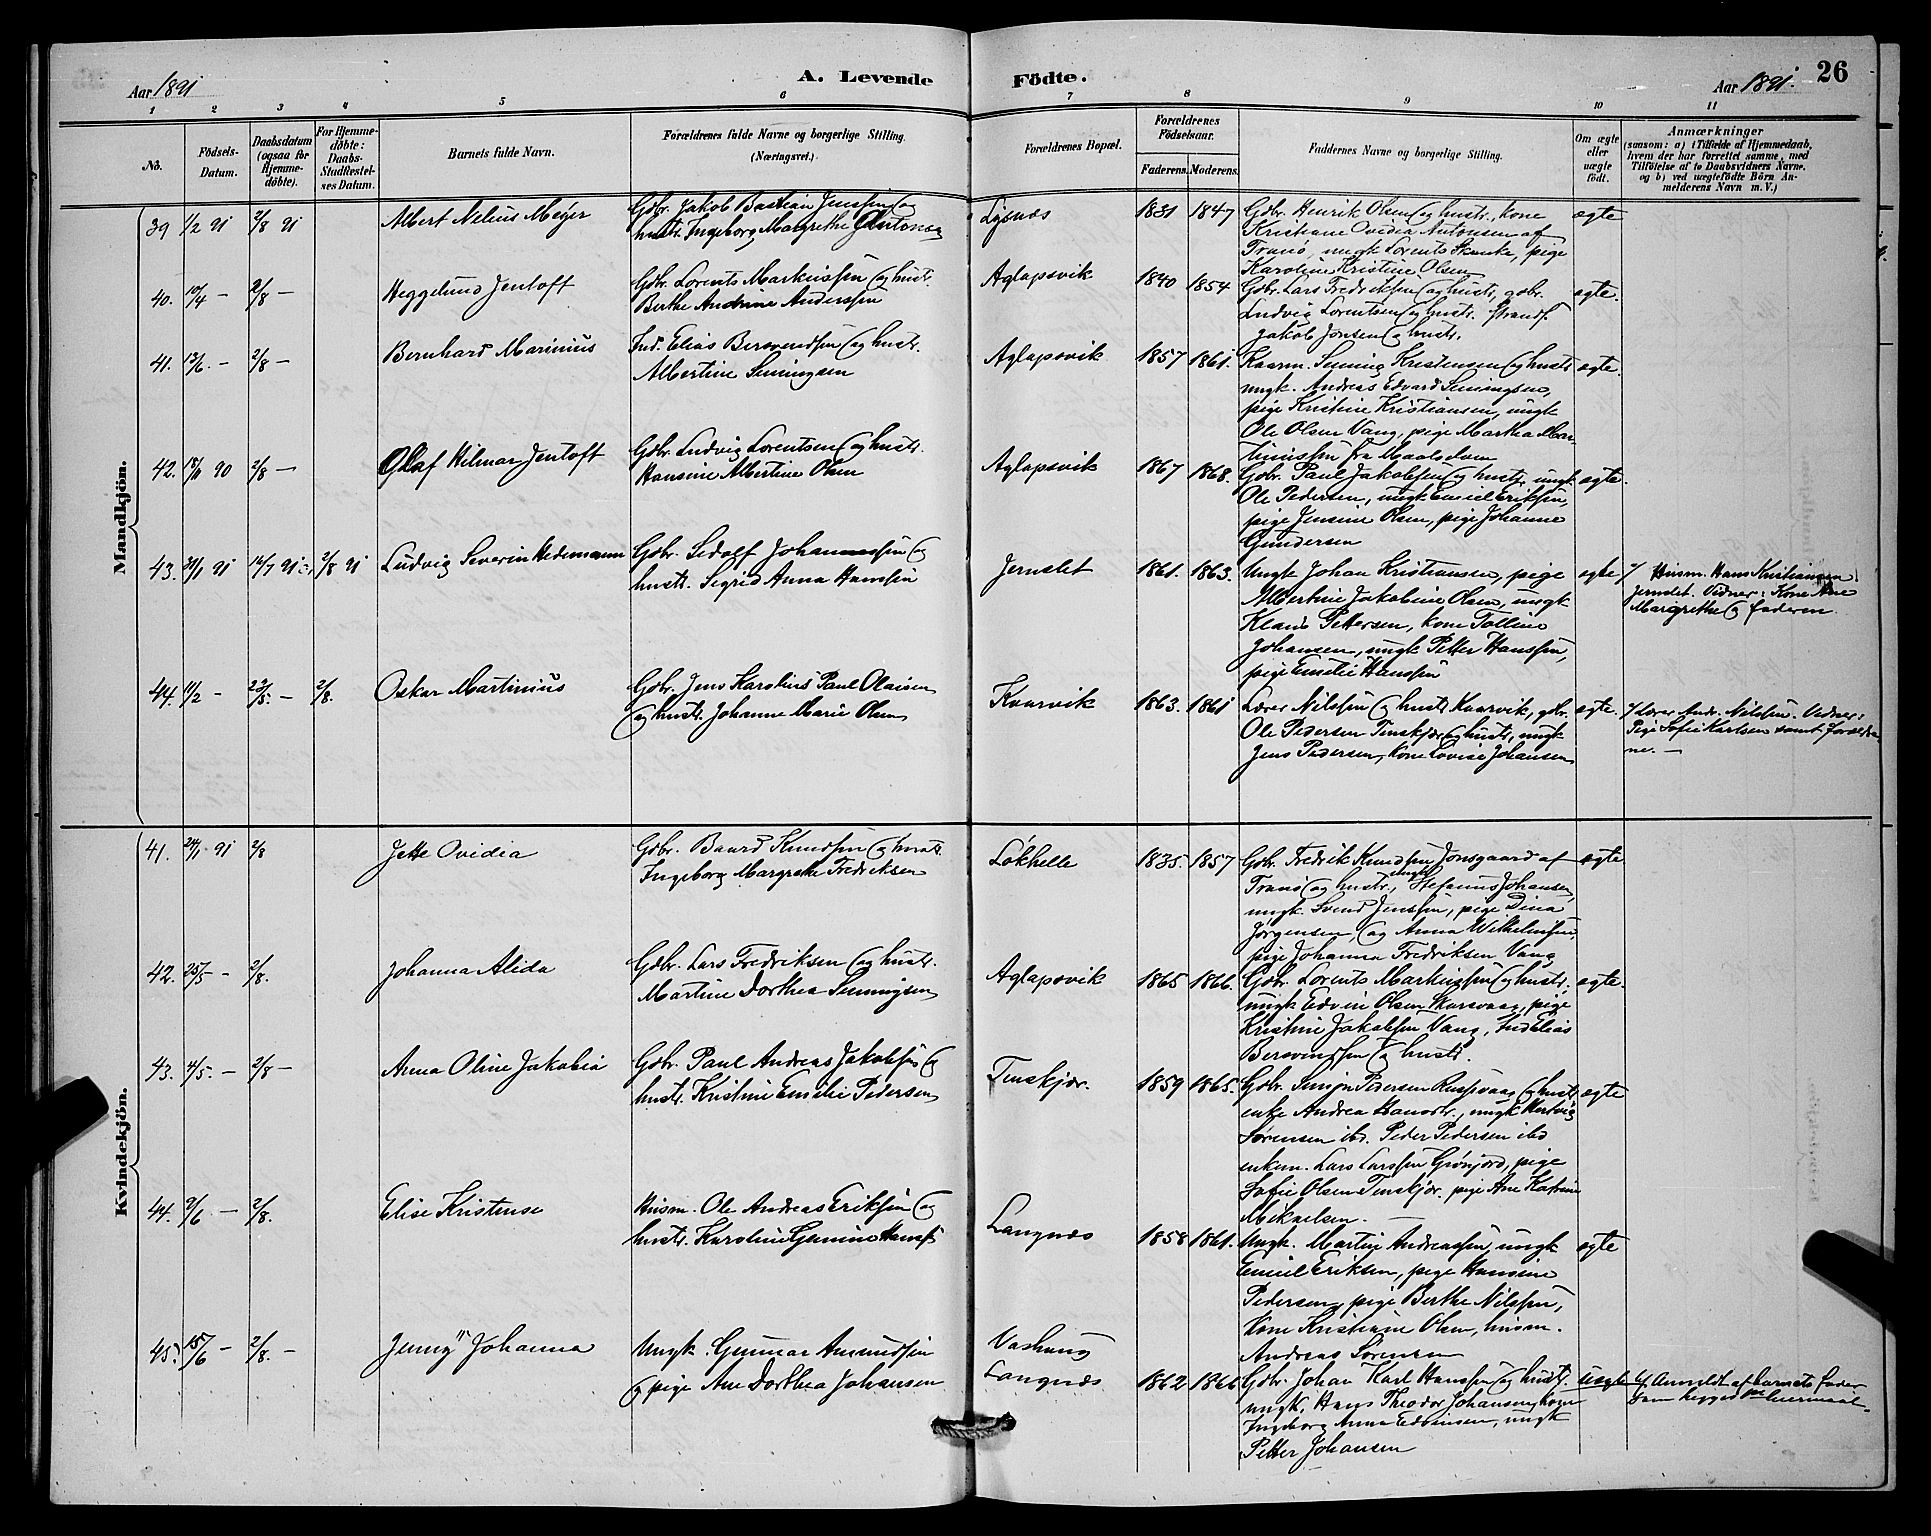 Aar 1891
A. Levende
Födte.
Aar 1891.
26
1 2 3 4 5 6 7 8 9 10 11
No.
Födsels-
Datum.
Daabsdatum
(ogsaa for
Hjemme-
döbte).
For Hjemme-
döbte:
Daabs-
Stadfæstel-
ses Datum.
Barnets fulde Navn.
Forældrenes fulde Navne og borgerlige Stilling.
(Næringsvei.)
Forældrenes Bopæl.
Forældrenes
Födselsaar.
Faderens. Moderens.
Faddernes Navne og borgerlige Stilling.
Om ægte
eller
uægte
födt.
Anmærkninger
(saasom: a) i Tilfælde af Hjemmedaab,
hvem der har forrettet samme, med
Tilföielse af to Daabsvidners Navne,
og b) ved uægtefödte Börn An-
melderens Navn m. V.)
Mandkjön.
39 1/2 91 2/8 91
Albert Nelius Meyer
Gbr. Jakob Bastian Jenssen og
hustr. Ingeborg Margrethe
Lysnes
1831 1847
Gbr. Henrik Olsen og hustr., kone
Kristiane Ovidia Antonsen af
Tranö, ungk Lorents Skanke, pige
Karoline Kristine Olsen
ægte
40. 10/4 — 2/8 —
Heggelund Jentoft
Gbr. Lorents Markussen og hust.
Berthe Andrine Anderssen
Aglapsvik
1840 1854
Gbr. Lars Fredriksen og hustr, gbr.
Ludvig Lorentsen og hustr. Strands.
Jakob Jonsen og hustr.
ægte.
41. 13/6 — 2/8 —
Bernhard Marinius
Ind. Elias Bersvendsen og hustr.
Albertine Simingsen
Aglapsvik
1857 1861.
Kaarm. Seming Kristensen og hustr
ungk. Andreas Edvard Simingsen,
pige Kristine Kristiansen, ungk
Ole Olsen Vang, pige Martha Mar-
tinussen fra Maalsdam
ægte.
42. 18/11 90 2/8 —
Olaf Hilmar Jentoft
Gbr. Ludvig Lorentsen og hustr.
Hansine Albertine Olsen
Aglapsvik
1867 1868.
Gbr. Paul Jakobsen og hustr, ungk
Ole Pedersen, ungk Emil Eriksen,
pige Jensine Olsen, pige Johanne
Gundersen
ægte.
43. 21/1 91 14/7 91 2/8 91
Ludvig Severin Hedemann
Gbr. Sedolf Johannessen og
hustr. Sigrid Anna Hanssen
Jernslet
1861. 1863.
Ungk Johan Kristiansen, pige
Albertine Jakobine Olsen, ungk
Klaus Pettersen, kone Tolline
Johansen, ungk Petter Hanssen,
pige Emilie Hanssen
ægte
Husm. Hans Kristiansen
Jernslet. Vidner: Kone Ane
Margrethe og faderen.
44. 11/2 — 23/5 — 2/8.
Oskar Martinius
Gbr. Jens Karolius Paul Olaisen
og hustr. Johanne Marie Olsen
Kvarvik
1863. 1861
Lærer Nilssen og hustr Kvarvik, gbr.
Ole Pedersen Tinskjær og hustr, ungk
Jens Pedersen, kone Lovise Johansen
ægte.
Lærer Andr. Nilssen. Vidner:
Pige Sofie Karlsen samt foreldre-
ne. —
Kvindekjön.
41. 24/1 91 2/8
Jette Ovidia
Gbr. Baard Knudsen og hustr.
Ingeborg Margrete Fredriksen
Løkhelle
1835. 1857
Gbr Fredrik Knudsen Jonsgaard af
Tranö og hustr., ungk Stefanus Johansen,
ungk. Svend Jenssen, pige Dina
Jørgensen, og Anna Wilhelmsen,
pige Johanna Fredriksen Vang
ægte
42. 25/5 — 2/8.
Johanna Alida
Gbr. Lars Fredriksen og hustr.
Martine Dorthea Simingsen
Aglapsvik
1865 1866.
Gbr. Lorents Markussen og hustr,
ungk Edvin Olsen Skarsvaag, pige
Kristine Jakobsen Vang, Ind Elias
Bersvendsen og hustr.
ægte.
43. 4/5 — 2/8 —
Anna Oline Jakobia
Gbr. Paul Andreas Jakobsen og
hustr. Kristine Emilie Pedersen
Tinskjær.
1859 1865.
Gbr. Simon Pedersen og hustr
enke Andrea Hansdtr., ungk Hartvig
Sørensen ibd. Peder Pedersen ibd
enkem. Lars Larssen Grønjord, pige
Sofie Olsen Tinskjær. pige Ane Katrine
Mikaelsen. —
ægte
44. 9/6 — 2/8.
Elise Kristense
Husm. Ole Andreas Eriksen og
hustr. Karoline Hanss.
Langnes
1858 1861.
Ungk. Martin Andreassen, ungk
Emil Eriksen, pige Hansine
Pedersen, pige Berthe Nilssen,
kone Kristiane Olsen, husm.
Andreas Sørensen
ægte
45. 15/6 — 2/8. —
Jenny Johanna
Ungk. Gunnar Amundsen
og pige Ane Dorthea Johansen
Vashaug
Langnes
1862 1866
Gbr. Johan Karl Hanssen og hustr.
ungk. Hans Theodor Johansen, kone
Ingeborg Anna Edvinsen, ungk
Petter Johansen
uægte
Anmeldt af barnets fader